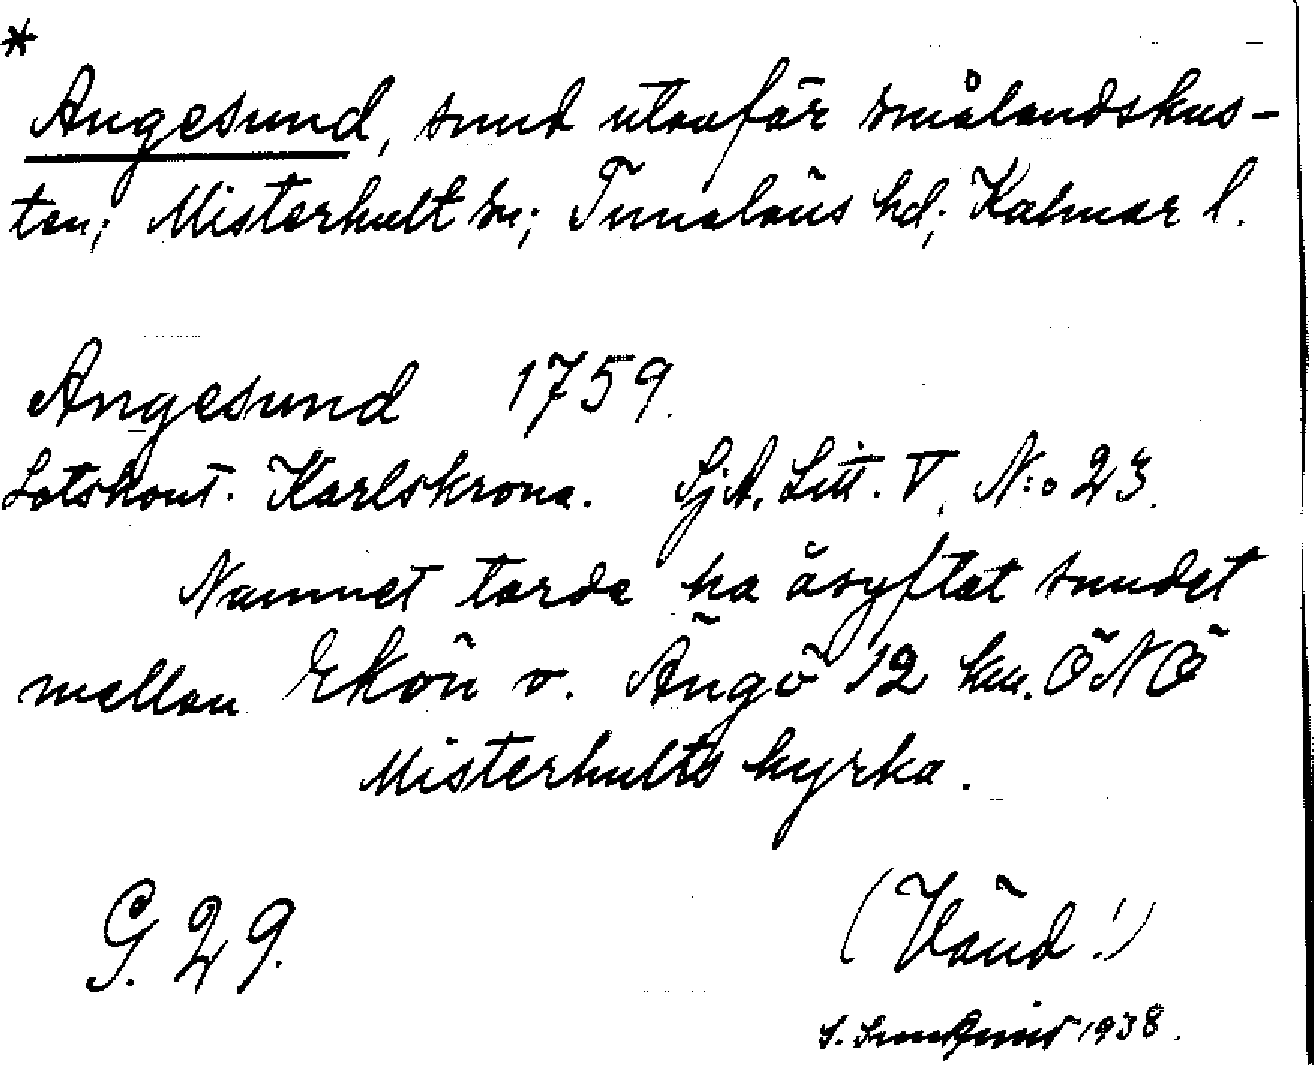 *
Angesund, sund utanför smålandskus-
ten; Misterhult sn; Tunaläns hd; Kalmar l.
Angesund 1759.
Lotskont. Karlskrona. SjA. Litt. V, N:o 23.
Namnet torde ha åsyftat sundet
mellan Ekön o. Ängö 12 km. ÖNÖ
Misterhults kyrka.
G. 29.
(Vänd!)
S. 1938.